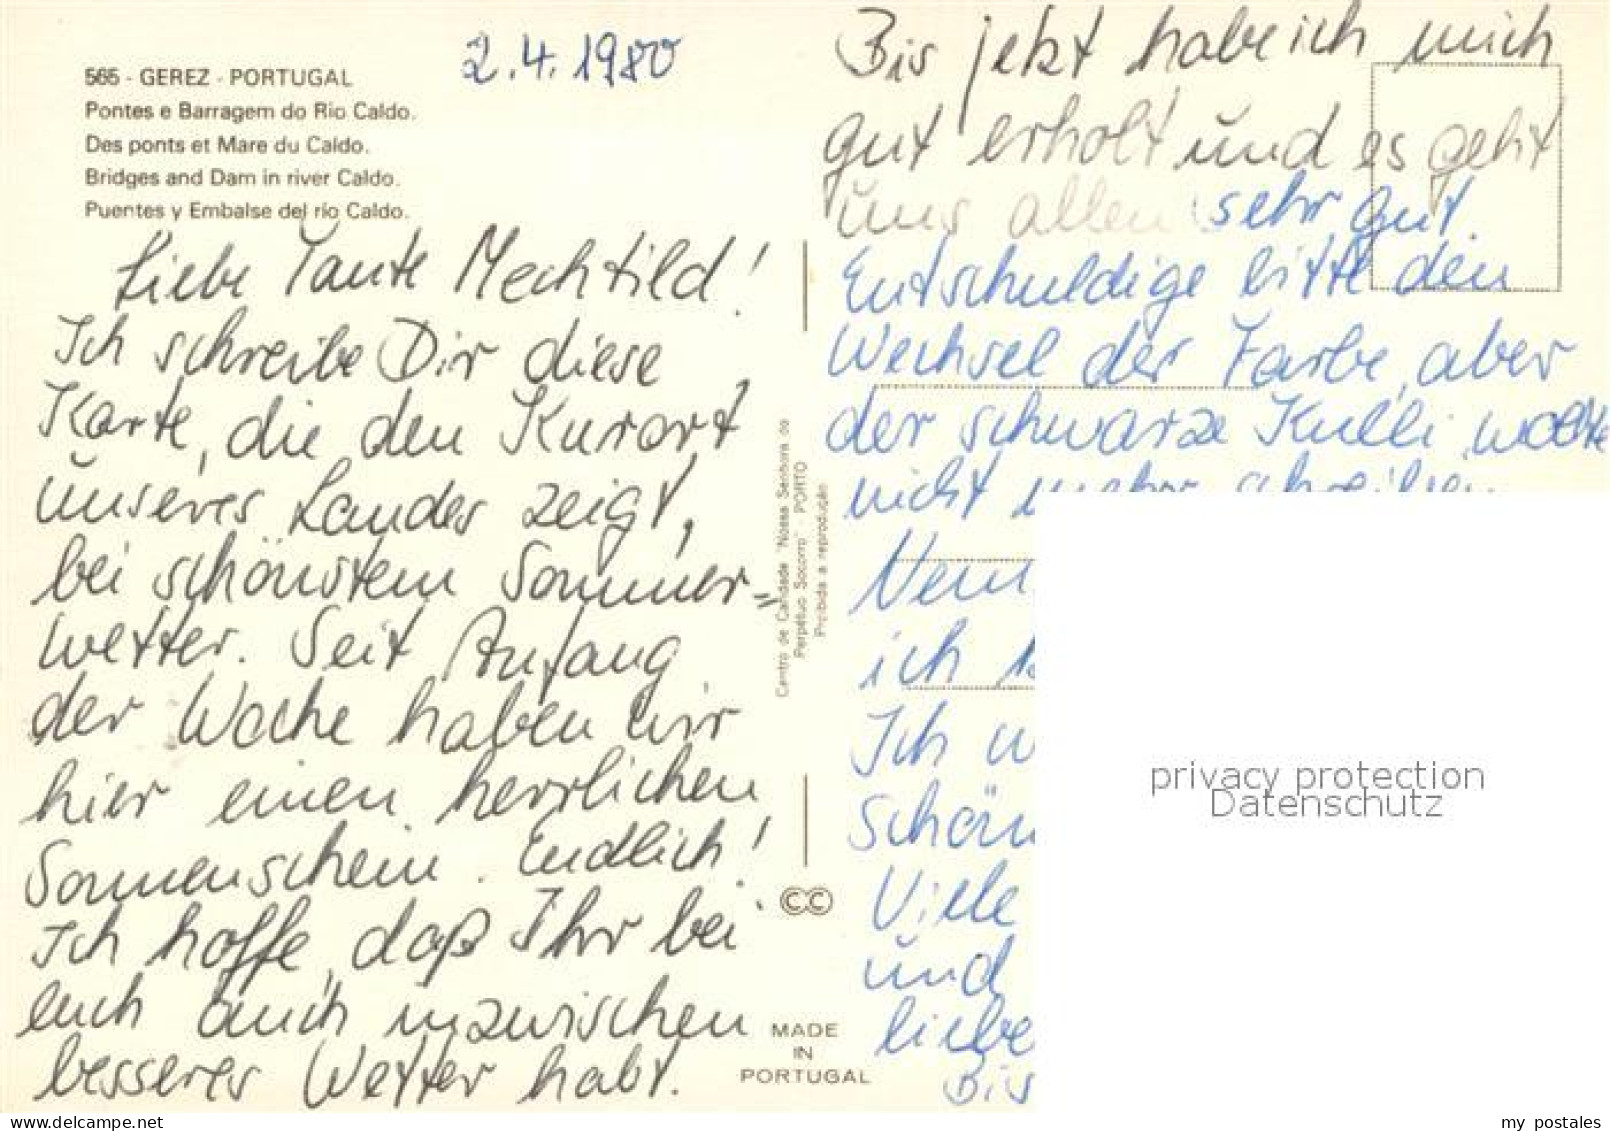 2.4.1980
565 - GEREZ - PORTUGAL
Pontes e Barragem do Rio Caldo.
Des ponts et Mare du Caldo.
Bridges and Dam in river Caldo.
Puentes y Embalse del río Caldo.
Liebe Tante Mechtild!
Ich schreibe Dir diese
Karte, die den Kurort
unseres Landes zeigt,
bei schönstem Sommer=
wetter. Seit Anfang
der Woche haben wir
hier einen herrlichen
Sonnenschein. Endlich!
Ich hoffe, daß Ihr bei
euch auch inzwischen
besseres Wetter habt.
Centro de Caridade "Nossa Senhora do
Perpétuo Socorro" - PORTO
Proibida a reprodução
CC
MADE
IN
PORTUGAL
Bis jetzt habe ich mich
gut erholt und es geht
uns allen sehr gut.
Entschuldige bitte den
Wechsel der Farbe, aber
der schwarze Kulli wollte
nicht mehr schreiben
ich
Ich w
Schön
Viele
und
liebe
Bis
privacy protection
Datenschutz
delcampe.net
my postales